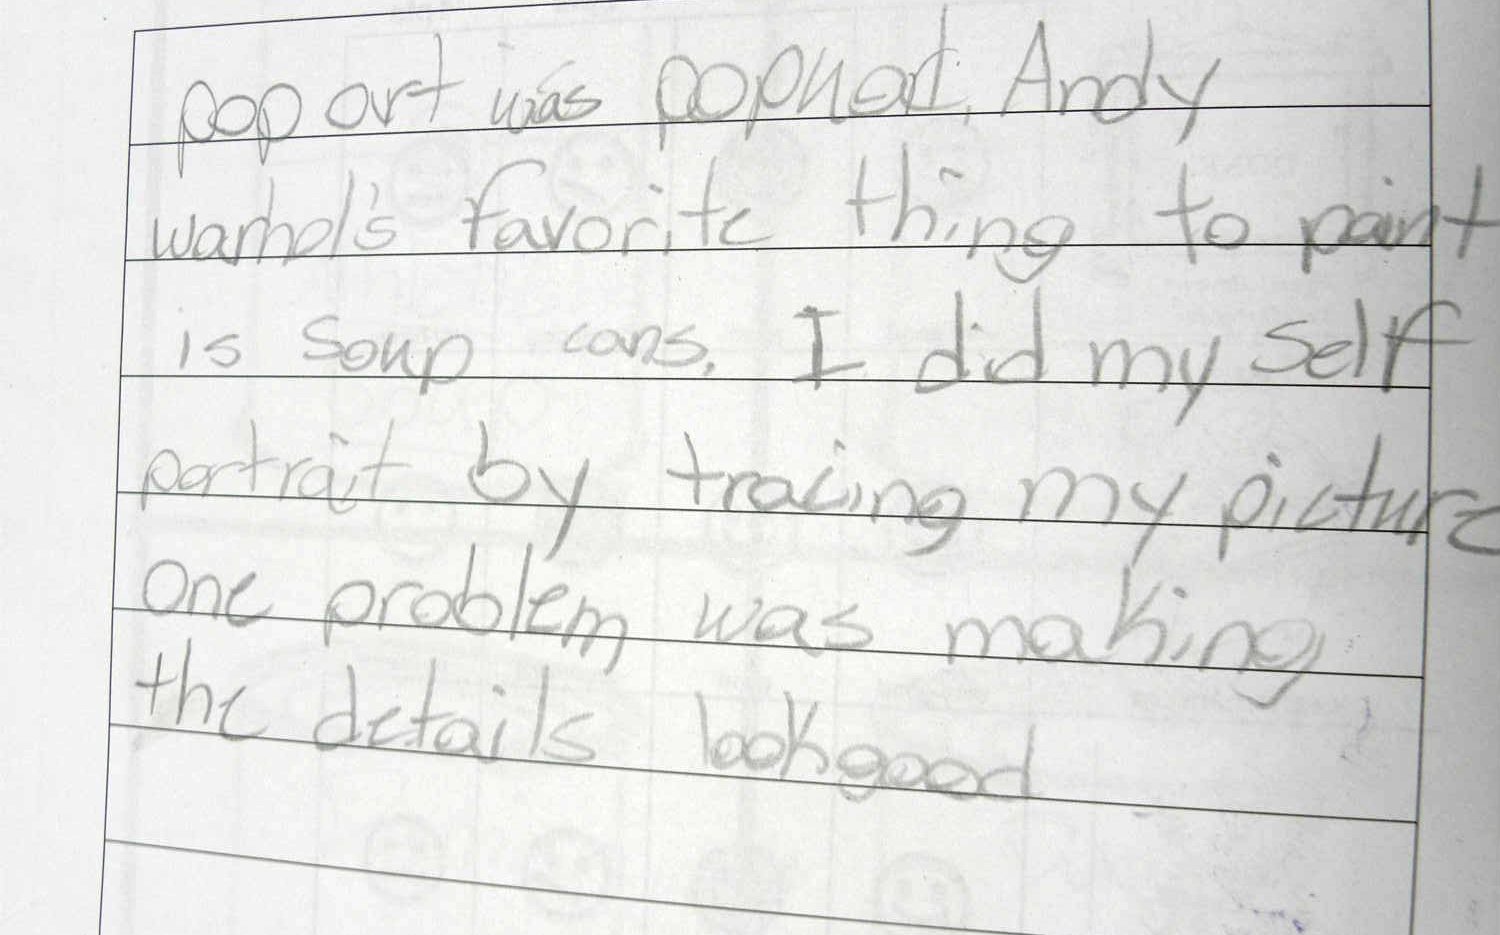 pop art was pophart. Andy
warhol's favorite thing to paint
is soup cans. I did my self
portrait by tracing my picture
one problem was making
the details look good